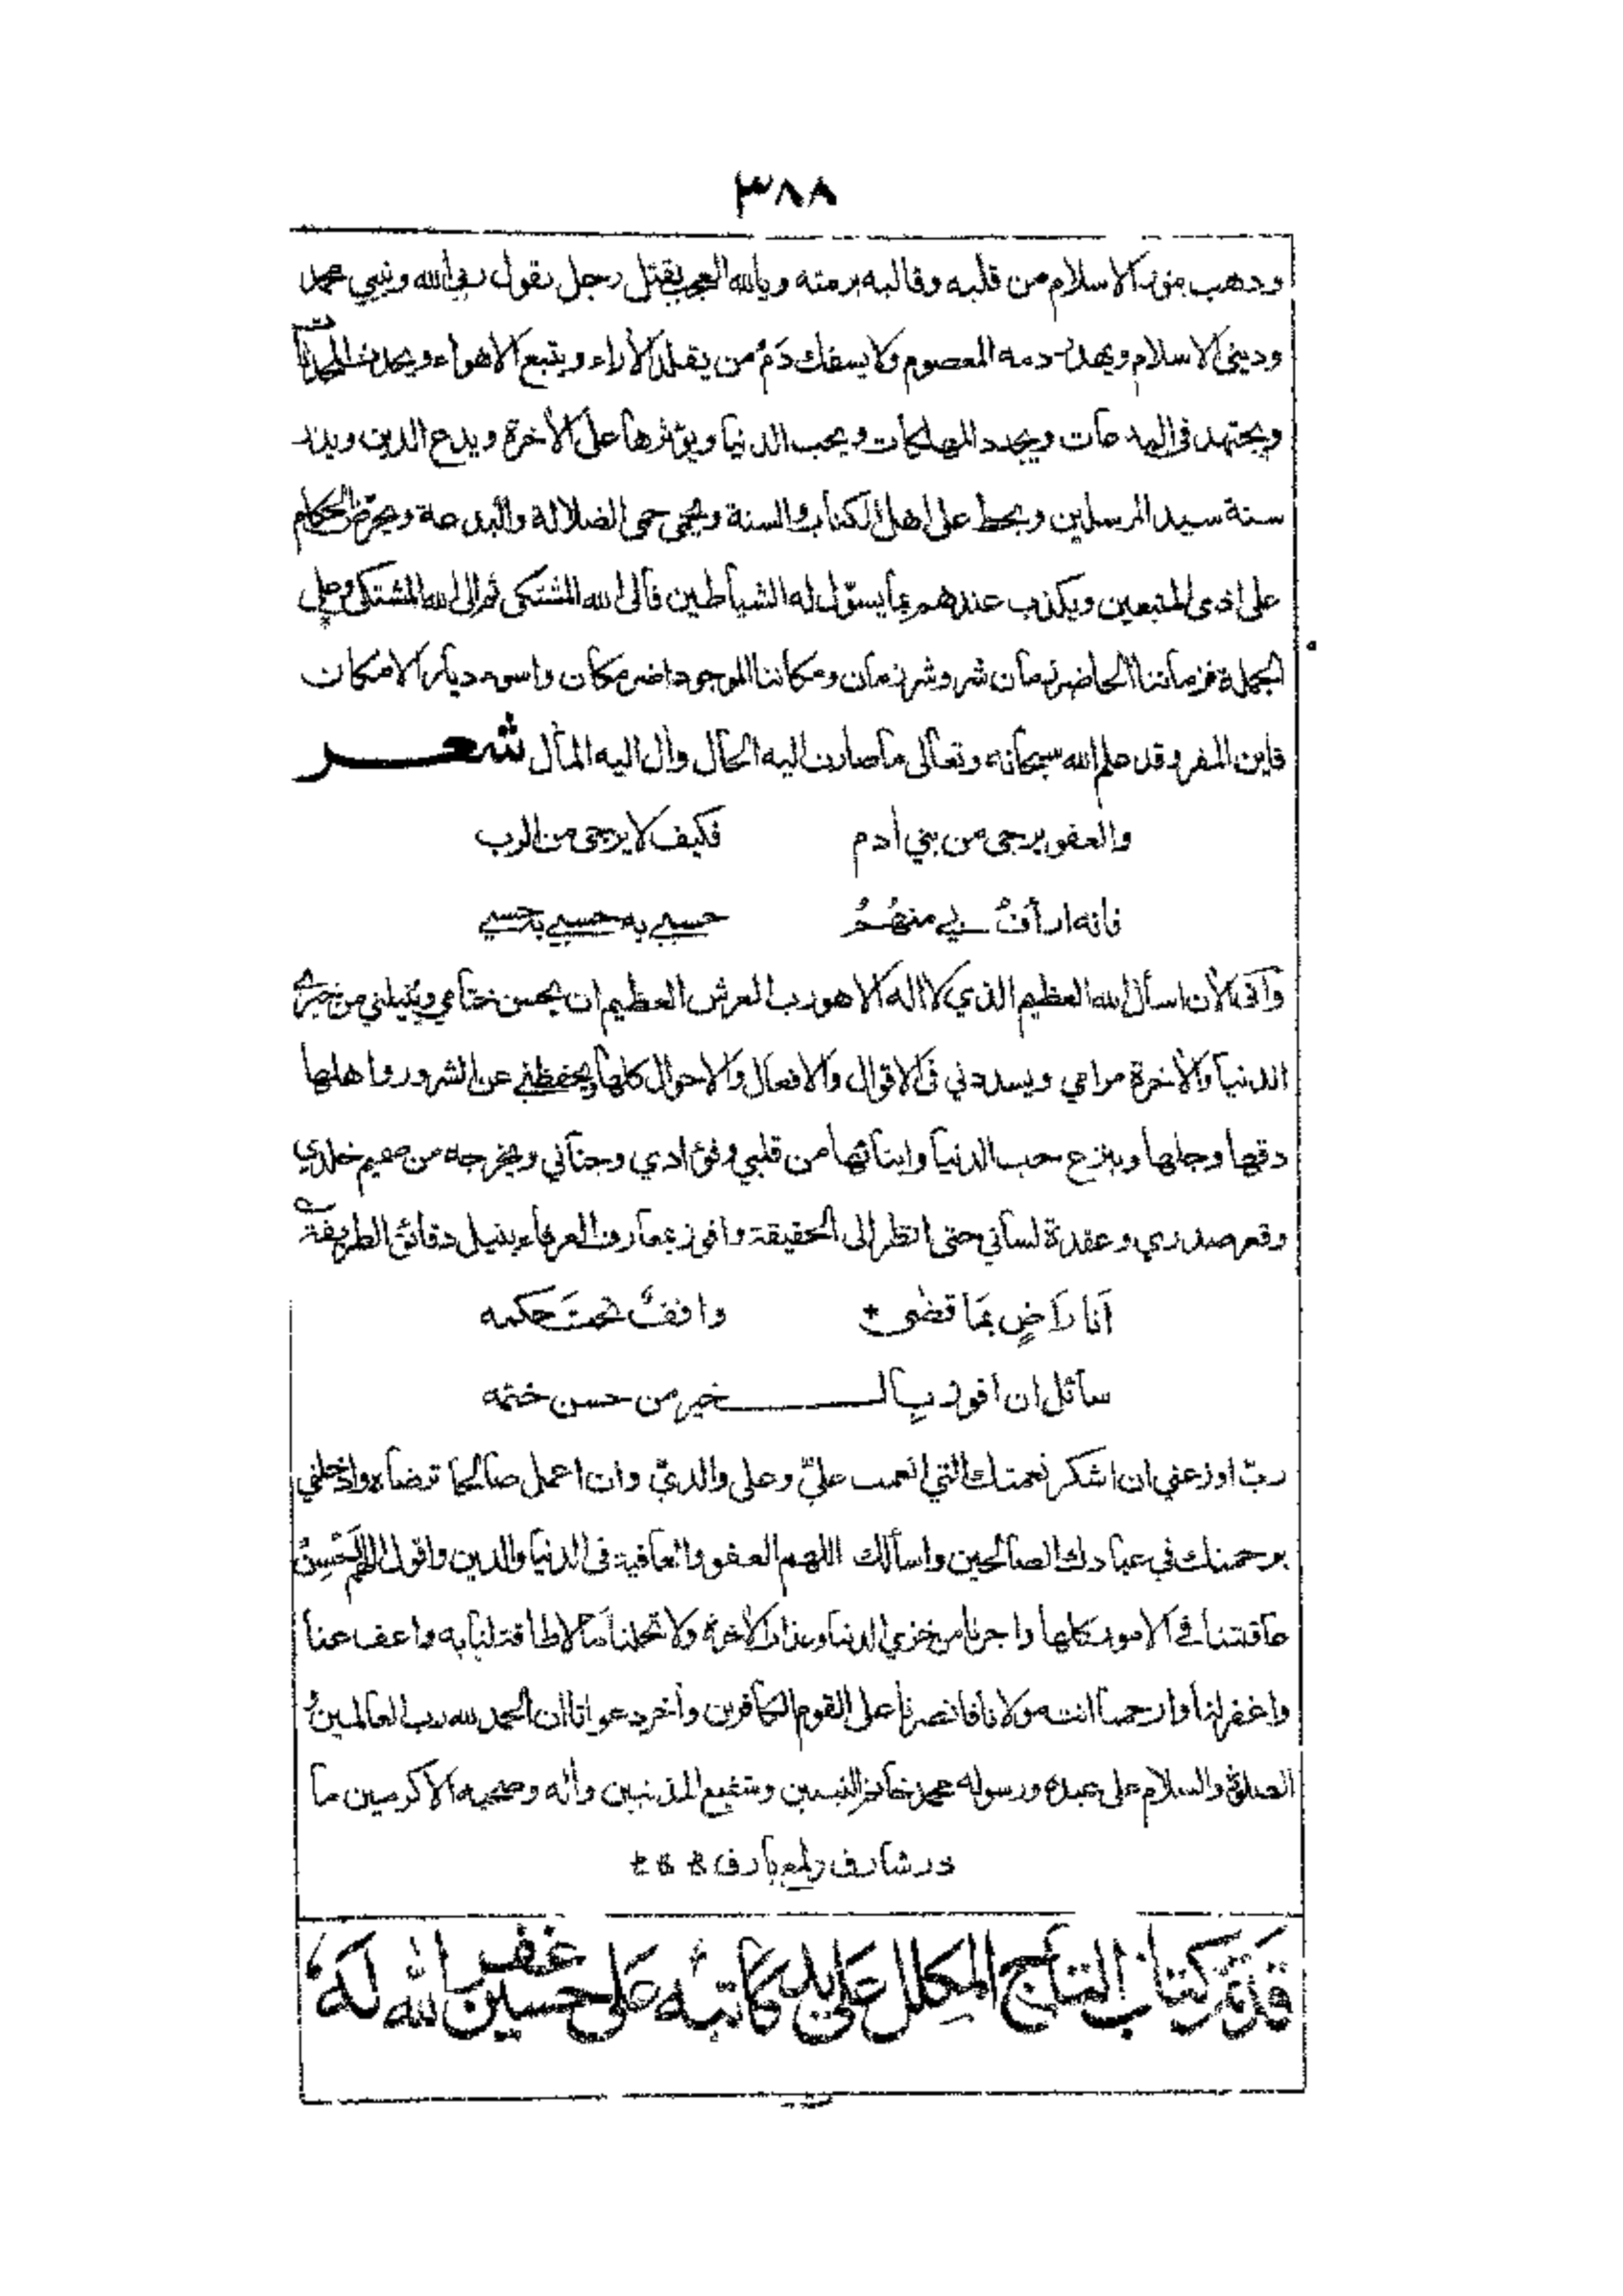 ٣٨٨
وذهب بنور الاسلام من قلبه وقالبه برمته ويالله العجب يقتل رجل يقول ربي الله ونبي محمد
وديني الاسلام ويهدر دمه المعصوم ولا يسفك دَمُ من يقلد الآراء ويتبع الاهواء ويحدث المحدثات
ويجتهد في البدعات ويجدد المهلكات ويحب الدنيا ويؤثرها على الآخرة ويدع الدين ويذر
سنة سيد المرسلين ويحط على اهل الكتاب والسنة ويحمي حمى الضلالة والبدعة ويحرّض الحكام
على اذى المتبعين ويكذب عندهم بما يسوّل له الشياطين فالى الله المشتكى ثم الى الله المشتكى وعلى
الجملة فزماننا الحاضر زمان شر وشر زمان ومكاننا الموجود اضر مكان واسوء ديار الامكان
فاين المفر وقد علم الله سبحانه وتعالى ما صارت اليه الحال وآل اليه المآل شعر
والعفو يرجى من بني آدم فكيف لا يرجى من الرب
فانه ارأفُ بي منهُمُ حسبي به حسبي به حسبي
وانى الآن اسأل الله العظيم الذي لا اله الا هو رب العرش العظيم ان يحسن ختامي وينيلني من خيري
الدنيا والآخرة مرامي ويسددني في الاقوال والافعال والاحوال كلها ويحفظني عن الشرور واهلها
دقها وجلها وينزع حب الدنيا وابنائها من قلبي وفؤادي وجناني ويخرجه من صميم خلدي
وقعر صدري وعقدة لساني حتى انظر الى الحقيقة وافوز بمعارف العرفاء بنيل دقائق الطريقة
اَنا رَاضٍ بمَا قضى * واقفٌ تحتَ حكمه
سائل ان افوز بِالــــخير من حسن ختمه
ربّ اوزعني ان اشكر نعمتك التي انعمت عليّ وعلى والديّ وان اعمل صالحا ترضاه وادخلني
برحمتك في عبادك الصالحين واسألك اللهم العفو والعافية في الدنيا والدين واقول اللهم اَحْسِنْ
عاقبتنا في الامور كلها واجرنا من خزي الدنيا وعذاب الآخرة ولا تحملنا ما لا طاقة لنا به واعف عنا
واغفر لنا وارحمنا انت مولانا فانصرنا على القوم الكافرين وآخر دعوانا ان الحمد لله رب العالمين و
الصلوة والسلام على عبده ورسوله محمد خاتم النبيين وشفيع المذنبين وآله وصحبه الاكرمين ما
ذر شارف ولمع بارق
قَد تَمَّ كِتَابُ التاج المكلل عَلى يد كَاتبه عَلى حسين غفر الله لَهُ